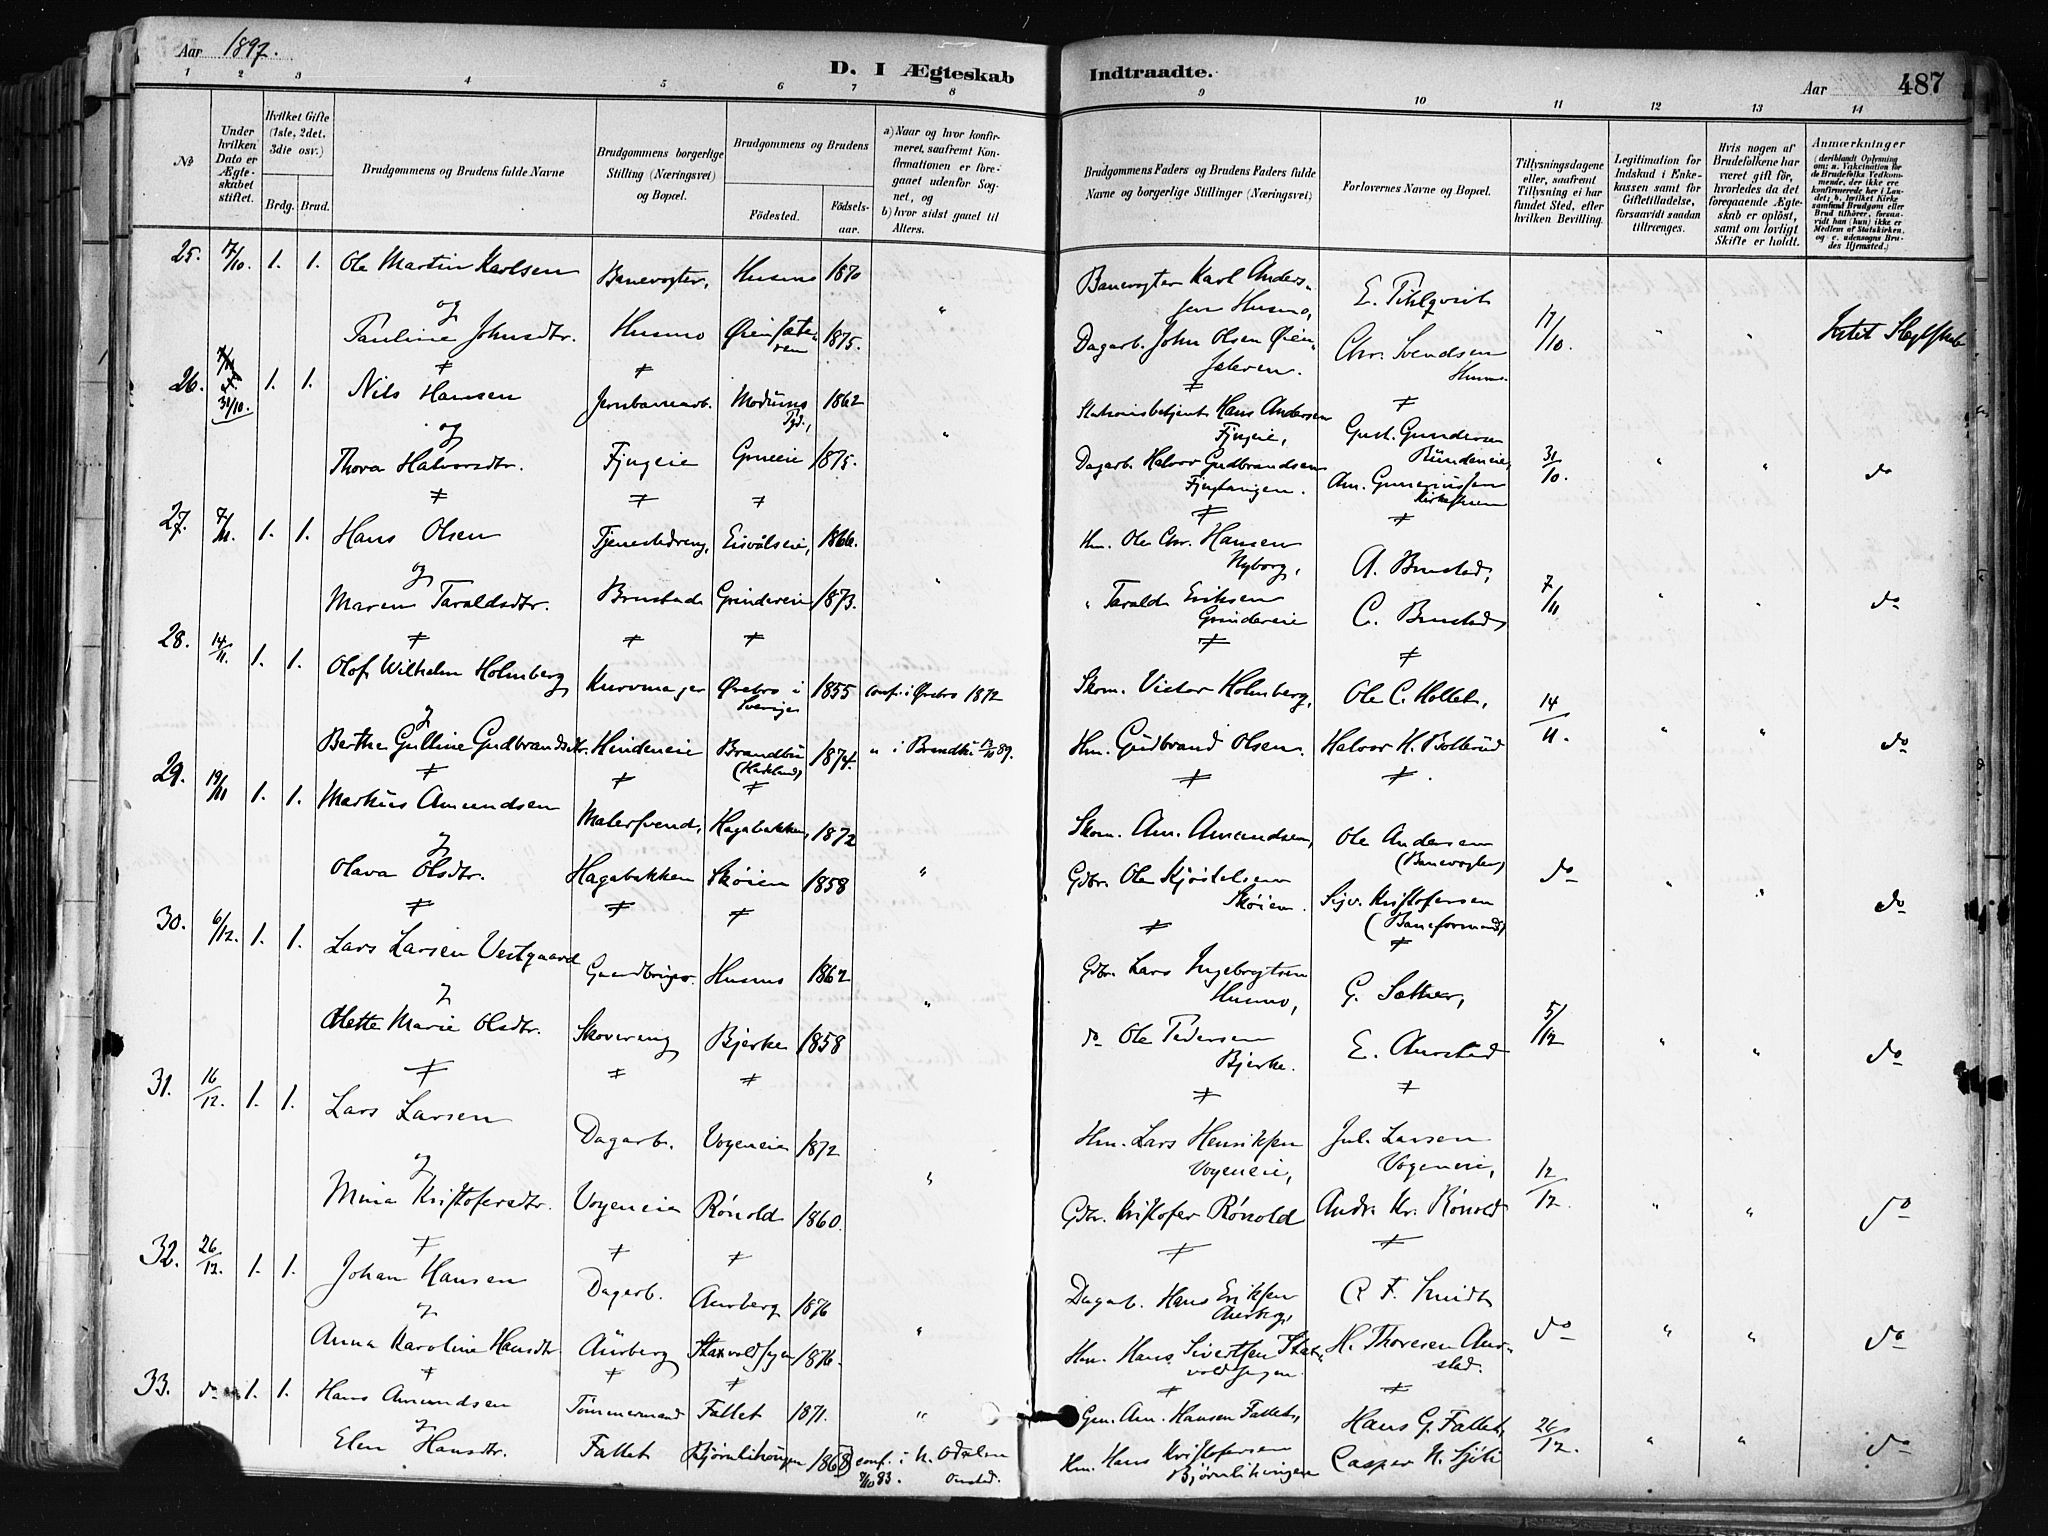 Aar 1897.
D. I Ægteskab Indtraadte.
Aar 487
1 2 3 4 5 6 7 8 9 10 11 12 13 14
No
Under hvilken Dato er Ægteskabet stiftet.
Hvilket Gifte (1ste, 2det, 3die osv.)
Brdg. Brud.
Brudgommens og Brudens fulde Navne
Brudgommens borgerlige Stilling (Næringsvei) og Bopæl.
Brudgommens og Brudens
Fødested. Fødselsaar.
a) Naar og hvor konfirmeret, saafremt Konfirmationen er foregaaet udenfor Sognet, og
b) hvor sidst gaaet til Alters.
Brudgommens Faders og Brudens Faders fulde Navne og borgerlige Stillinger (Næringsvei)
Forlovernes Navne og Bopæl.
Tillysningsdagene eller, saafremt Tillysning ei har fundet Sted, efter hvilken Bevilling.
Legitimation for Indskud i Enkekassen samt for Giftetilladelse, forsaavidt saadan tiltrænges.
Hvis nogen af Brudefolkene har været gift før, hvorledes da det foregaaende Ægteskab er opløst, samt om lovligt Skifte er holdt.
Anmærkninger
(deriblandt Oplysning om: a. Vakcination for de Brudefolks Vedkommende, der ikke ere konfirmerede her i Landet; b. hvilket Kirkesamfund Brudgom eller Brud tilhører, forsaavidt han (hun) ikke er Medlem af Statskirken, og c. udensogns Brudes Hjemsted.)
25. 17/10. 1. 1. Ole Martin Karlsen Banevogter, Husmo 1870 Banevogter Karl Andersen Husmo, E. Tihlqvist
og
Pauline Johnsdtr. Husmo Øien 1875. " Dagarb. John Olsen Øien Chr. Svendsen Husmo. 17/10. " " Intet Slægtskab
26. 31/10. 1. 1. Nils Hansen Jernbanearb. Modums Pgd., 1862 Stationsbetjent Hans Andersen Fjugeie, Gust. Gundersen
og
Thora Halvorsdtr. Fjugeie Grueeie 1875. " Dagarb. Halvor Gudbrandsen Am. Guneriussen 31/10. " " do
27. 7/11. 1. 1. Hans Olsen Tjenestedreng, Eisvålseie, 1866. Hm. Ole Chr. Hansen Nyborg, A. Brustad,
og
Maren Taraldsdtr. Brustad Grindereie 1873. " " Tarald Eriksen Grindereie C. Brustad, 7/11 " " do
28. 14/11. 1. 1. Olof Wilhelm Holmberg, Kurvmager Ørebro i Sverige 1855 conf. i Ørebro 1872 Skom. Victor Holmberg, Ole C. Hollet,
og
Berthe Gulline Gudbrandsdtr. Hindereie Brandbu (Hadeland) 1874. " i Brandbu 89. Hm. Gudbrand Olsen. Halvor H. Bollerud 14/11. " " do
29. 19/11 1. 1. Markus Amundsen Malersvend, Hagabakken, 1872 Skom. Am. Amundsen, Ole Andersen (Banevogter)
og
Olava Olsdtr. Hagabakken Skøien 1858 " Gdbr. Ole Kjøstelsen Skøien. Sigv. Kristofersen (Baneformand) do " " do
30. 6/12. 1. 1. Lars Larsen Vestgaard Gaardbruger Husmo 1862 Gdbr. Lars Ingebrigtsen Husmo, G. Sæther,
og
Mette Marie Olsdtr. Skovereng Bjerke 1858 " do Ole Pedersen Bjerke. E. Aurstad 5/12 " " do
31. 16/12. 1. 1. Lars Larsen Dagarb. Vogeneie 1872 Hm. Lars Henriksen Vogeneie, Jul. Larsen Vogeneie,
og
Mina Kristofersdtr. Vogeneie Rønold 1860. " Gdbr. Kristofer Rønold Andr. Kr. Rønold 12/12. " " do
32. 26/12. 1. 1. Johan Hansen Dagarb. Aurberg 1876 Dagarb. Hans Eriksen Aurberg, C. F. Smidt
og
Anna Karoline Hansdtr. Aurberg 1876. " Hm. Hans Sivertsen H. Thoresen Aurstad. do " " do
33. do 1. 1. Hans Amundsen Tømmermand Fallet 1871. " Gm. Am. Hansen Fallet, Hans G. Fallet,
og
Elen Hansdtr. Fallet Bjørnlihøugen 1868 conf. i N. Odalen 7/10 83. Hm. Hans Kristofersen Bjørnlihøugen Casper H. 26/12. " " do